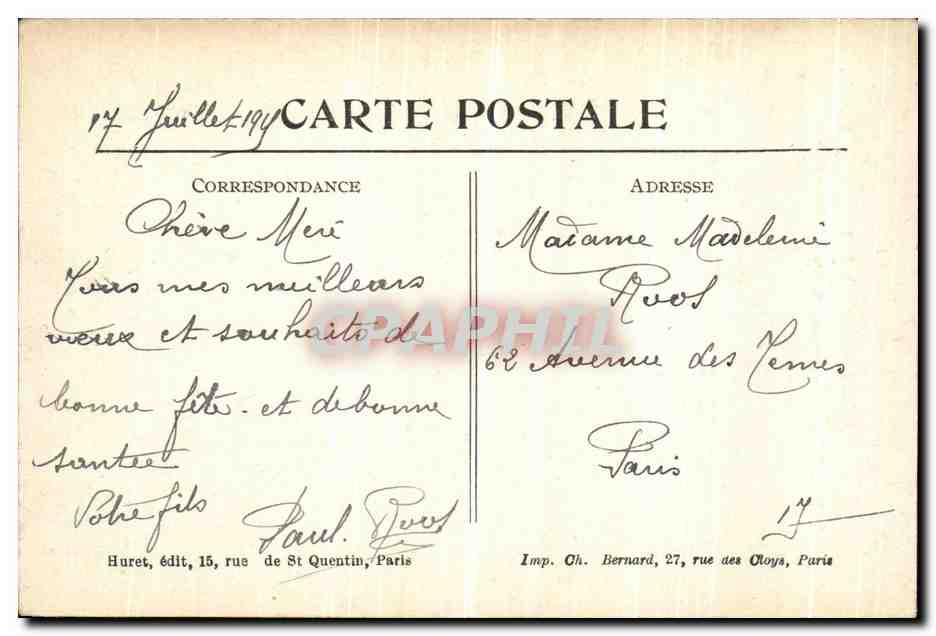 17 Juillet CARTE POSTALE
CORRESPONDANCE
Chère Meré
Tous mes meilleurs
vœux et souhaits de
bonne fête et de bonne
santée
Votre fils
Paul. Roos
Huret, édit, 15, rue de St Quentin, Paris
ADRESSE
Madame Madeleine
Roos
62 Avenue des Ternes
Paris
17
Imp. Ch. Bernard, 27, rue des Cloys, Paris
CPAPHIL